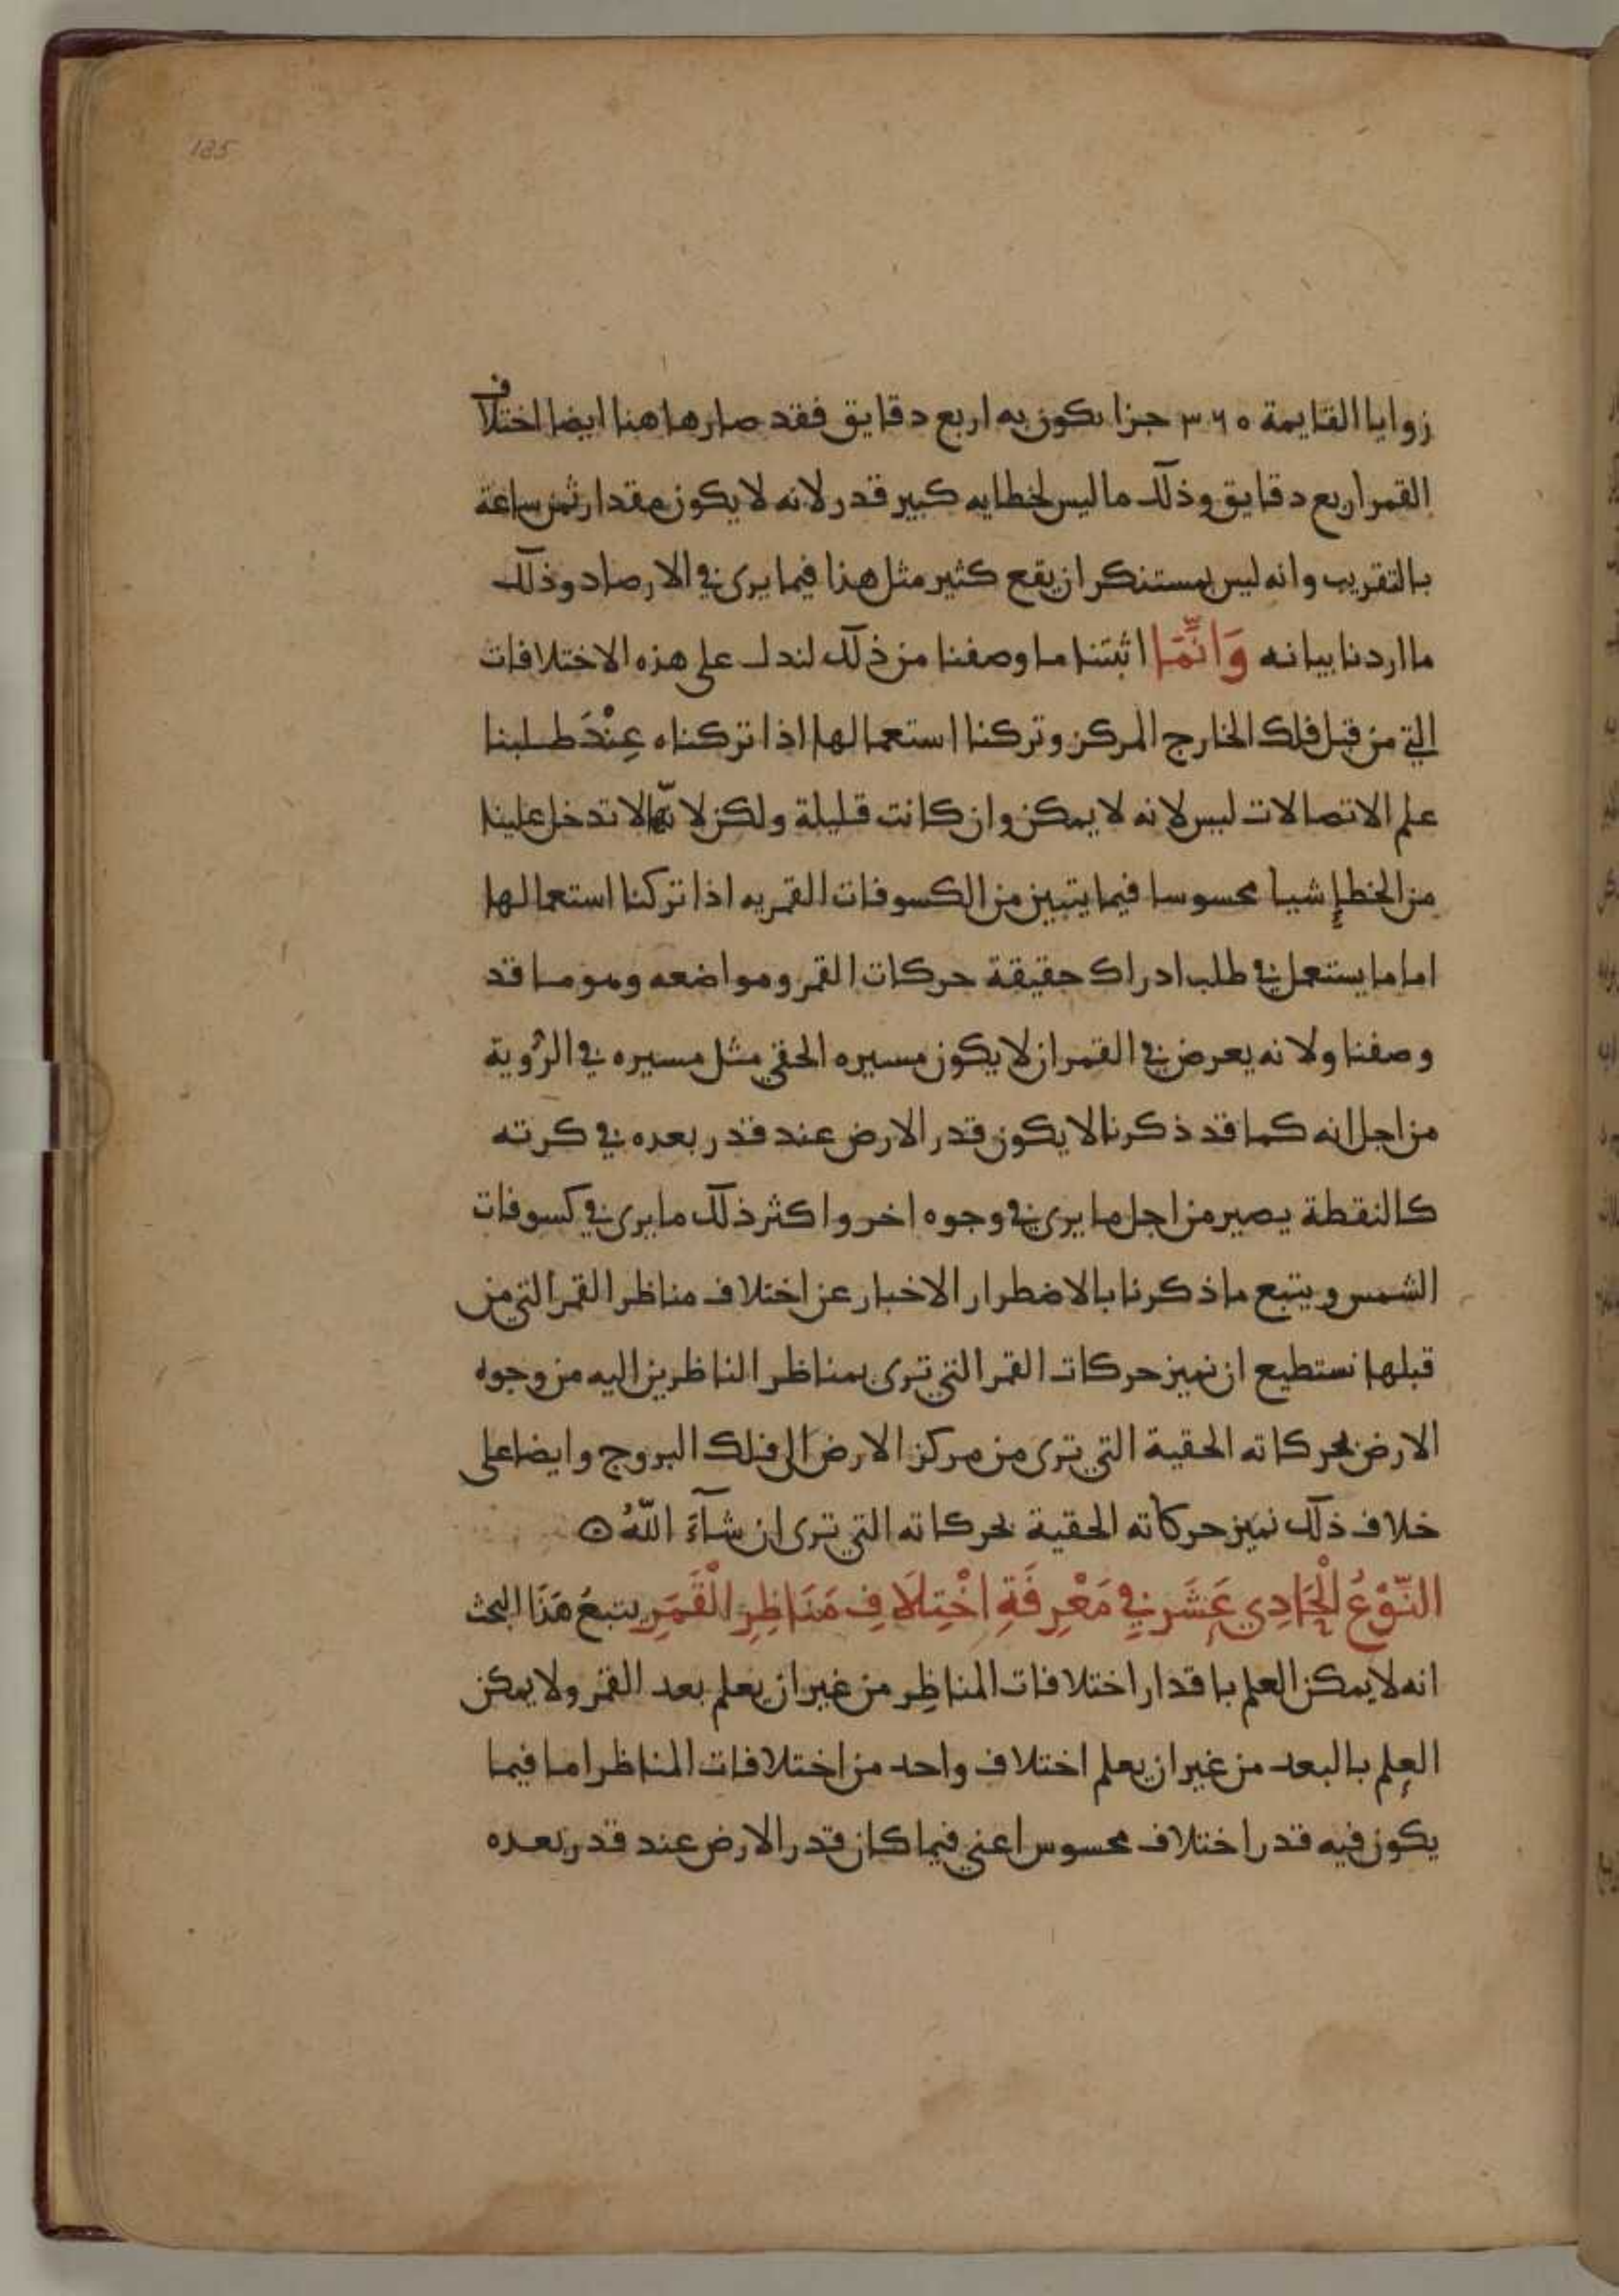 185
زوايا القايمة ٣٦٠ جزا يكون به اربع دقايق فقد صار هاهنا ايضا اختلاف
القمر اربع دقايق وذلك ما ليس لخطايه كبير قدر لانه لا يكون مقدار ثمن ساعة
بالتقريب وانه ليس بمستنكر ان يقع كثير مثل هذا فيما يرى في الارصاد وذلك
ما اردنا بيانه وَانَّمَا اثبتنا ما وصفنا من ذلك لندل على هذه الاختلافات
التي من قبل فلك الخارج المركز وتركنا استعمالها اذا تركناه عِنْدَ طلبنا
علم الاتصالات ليس لانه لا يمكن وان كانت قليلة ولكن لانّها لا تدخل علينا
من الخطإ شيا محسوسا فيما يتبين من الكسوفات القمريه اذا تركنا استعمالها
اما ما يستعمل في طلب ادراك حقيقة حركات القمر ومواضعه وهو ما قد
وصفنا ولانه يعرض في القمر ان لا يكون مسيره الحقي مثل مسيره في الرُوية
من اجل انه كما قد ذكرنا لا يكون قدر الارض عند قدر بعده في كرته
كالنقطة يصير من اجل ما يرى في وجوه اخر واكثر ذلك ما يرى في كسوفات
الشمس ويتبع ما ذكرنا بالاضطرار الاخبار عن اختلاف مناظر القمر التي من
قبلها نستطيع ان نميز حركات القمر التي ترى بمناظر الناظرين اليه من وجوه
الارض بحركاته الحقية التي ترى من مركز الارض الى فلك البروج وايضا على
خلاف ذلك نميز حركاته الحقية بحركاته التي ترى ان شآءَ اللّهُ
النَّوْعُ الْحَادِي عَشَر فِي مَعْرِفَةِ اخْتِلَافِ مَنَاظِرِ الْقَمَرِ يتبعُ هَذَا البحث
انه لا يمكن العلم باقدار اختلافات المناظِر من غير ان يعلم بعد القمر ولا يمكن
العِلم بالبعد من غير ان يعلم اختلاف واحد من اختلافات المناظر اما فيما
يكون فيه قدر اختلاف محسوس اعني فيما كان قدر الارض عند قدر بعده